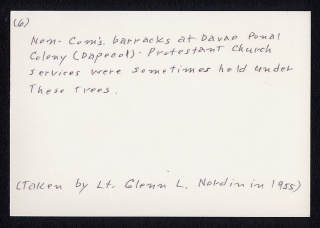 (6)
Non-Com's. barracks at Davao Penal
Colony (Dapecol) - Protestant Church
services were sometimes held under
These Trees.
(Taken by Lt. Glenn L. Nordin in 1955)